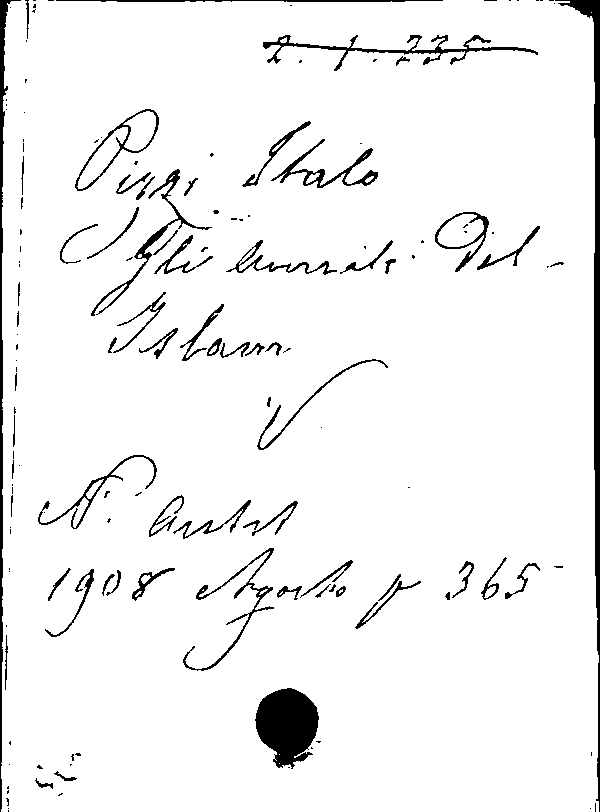 2.1.235
Pizzi Italo
Gli Del-
Islam
N. Antol
1908 Agosto p 365